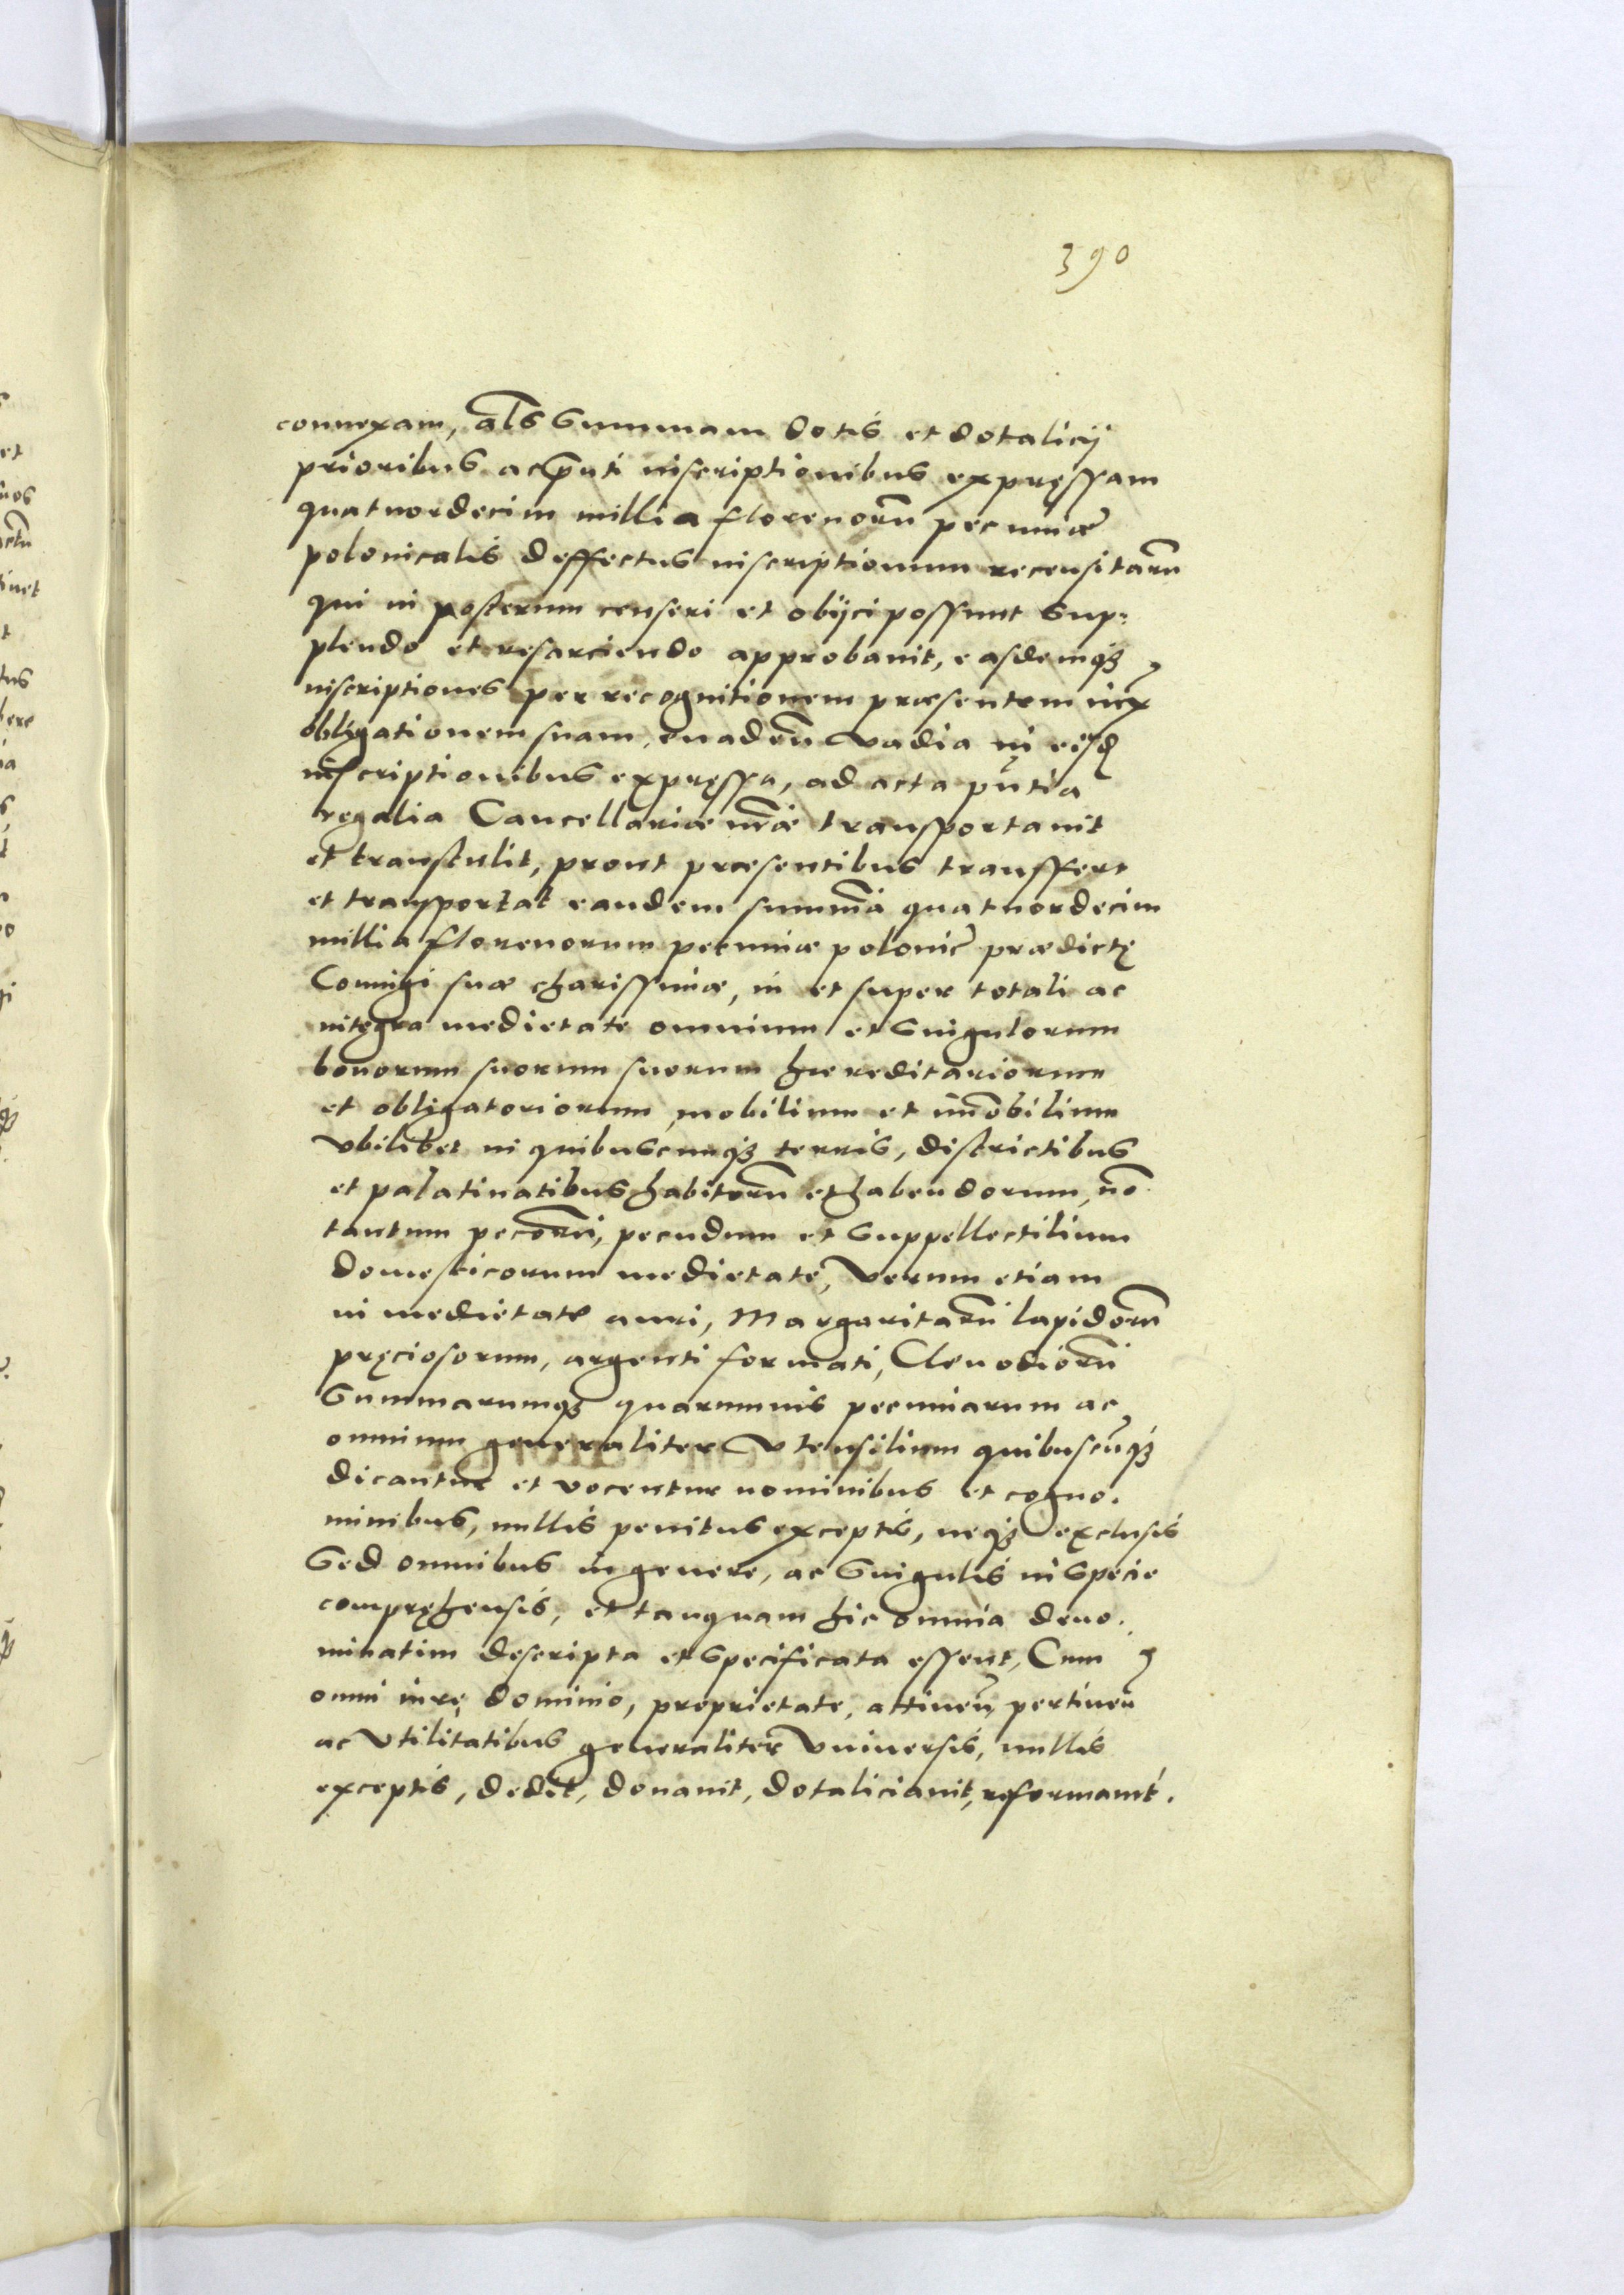 390
connexam, als Summam dotis et dotalicij
prioribus ac pñti inscriptionibus expręssam
quatuordecim millia florenorũ pecuniæ
polonicalis deffectus inscriptionum recensitarũ
qui in posterum censeri et obijci possunt Sup-
plendo et resarciendo approbauit, easdemq3
inscriptiones per recognitionem præsentem
obligationem suam, euadeñ vadia in eisd
inscriptionibus expręssa, ad acta pñtia
regalia Cancellariæ nr̃æ transportauit
et transtulit, prout præsentibus transffert
et transportat eandem summã quatuordecim
millia florenorum pecuniæ polonic̃ prædictę
Coniugi suæ charissimæ, in et super totali ac
integra medietate omnium et Singulorum
bonorum suorum suorum hæreditariorum
et obligatoriorum mobilium et im̃obilium
vbilibet in quibuscunq3 terris, districtibus
et palatinatibus habitorũ et habendorum, nõ
tantum pecorũ, pecudum et Suppellectilium
domesticorum medietate, verum etiam
in medietate auri, Margaritarũ lapidorũ
pręciosorum, argenti formati, Clenodiorũ
Summarumq3 quarumuis pecuniarum ac
omnium generaliter vtensilium quibuscũq3
dicantur et vocentur nominibus et cogno.
minibus, nullis penitus exceptis, neq3 exclusis
Sed omnibus in genere, ac Singulis in Specie
compręhensis, et tanquam hic omnia deno.
minatim descripta et Specificata essent, Cum
omni iure dominio, proprietate, attineñ pertineñ
ac vtilitatibus generaliter vniuersis, nullis
exceptis, dedit, donauit, dotaliciauit, reformauit.